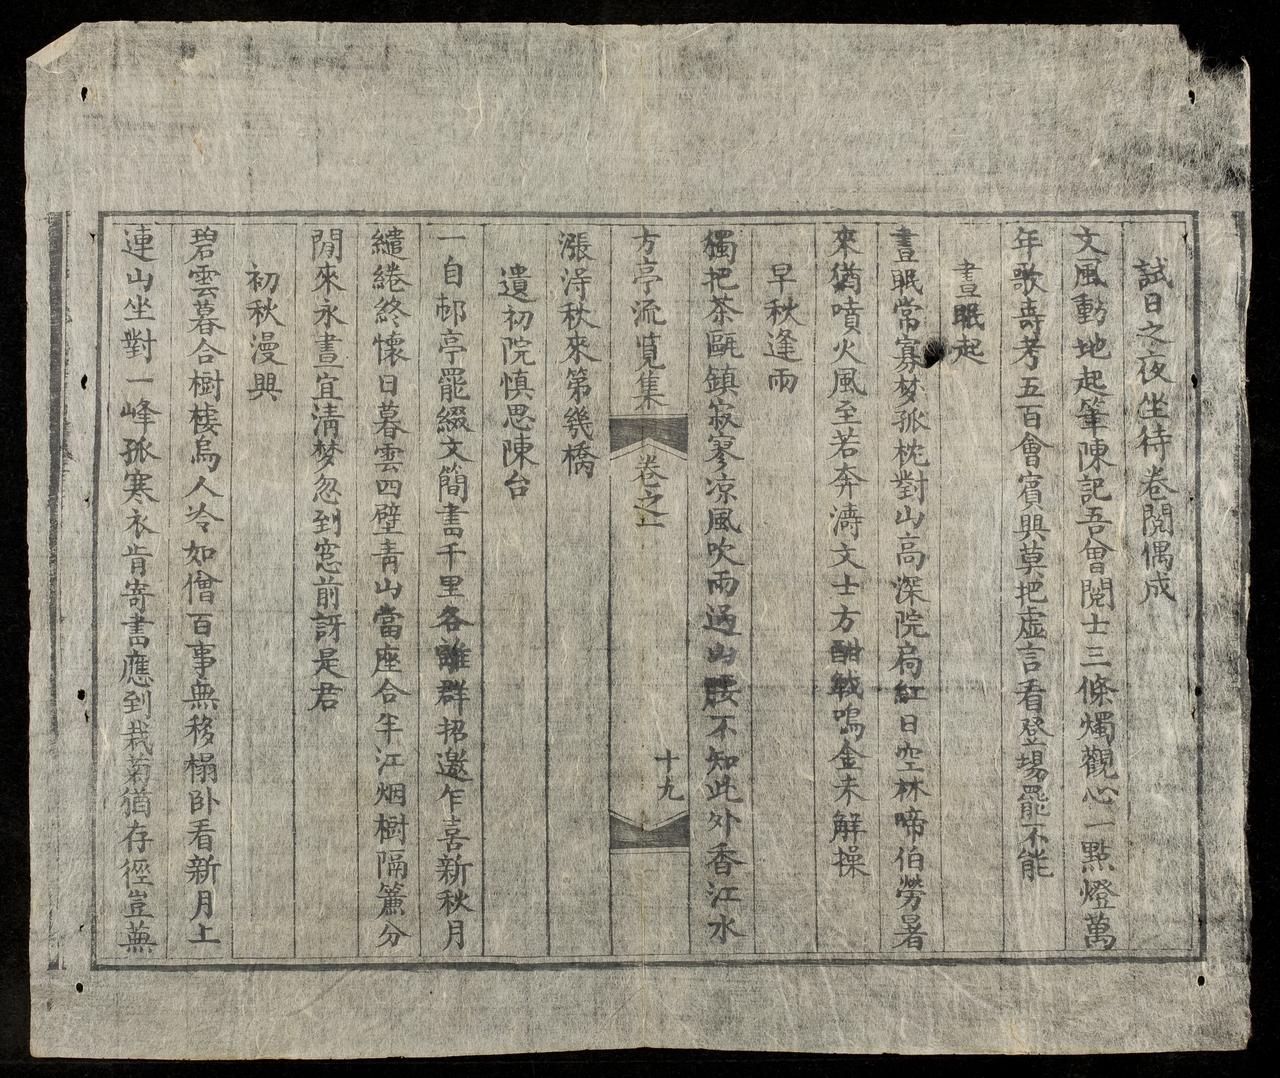 試日之夜坐待卷閱偶成
文風動地起筆陳記吾曾閱士三條燭觀心一點燈萬
年歌壽考五百會賓興莫把虛言看登場罷不能
晝眠起
晝眠常寡梦孤枕對山高深院扃紅日空林啼伯勞暑
來猶噴火風至若奔濤文士方酣戰鳴金未解操
早秋逢雨
獨把茶甌鎮寂寥凉風吹雨過山腰不知此外香江水
方亭流覽集
卷之一
十九
漲淂秋來第幾橋
遺初院慎思陳台
一自邮亭罷綴文簡書千里各離群招邀乍喜新秋月
繾綣終懷日暮雲四壁青山當座合半江烟樹隔簾分
閒來永晝宜清梦忽到窓前訝是君
初秋漫興
碧雲暮合樹棲烏人冷如僧百事無移榻卧看新月上
連山坐對一峰孤寒衣肯寄書應到栽菊猶存徑豈蕪